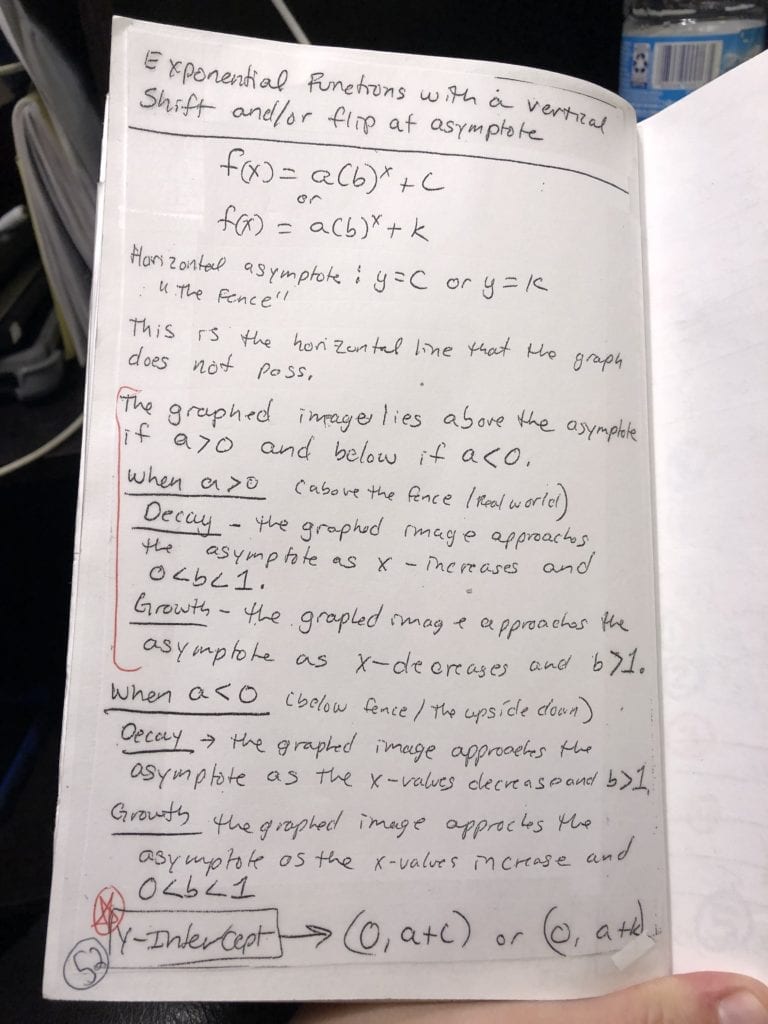 Exponential Functions with a vertical
Shift and/or flip at asymptote
f(x) = a(b)ˣ + C
or
f(x) = a(b)ˣ + k
Horizontal asymptote : y=C or y=K
"The Fence"
This is the horizontal line that the graph
does not pass.
The graphed image lies above the asymptote
if a>0 and below if a<0.
When a>0 (above the fence / Real world)
Decay - the graphed image approaches
the asymptote as x-increases and
0<b<1.
Growth - the graphed image approaches the
asymptote as x-decreases and b>1.
When a<0 (below fence / the upside down)
Decay → the graphed image approaches the
asymptote as the x-values decrease and b>1.
Growth the graphed image approches the
asymptote as the x-values increase and
0<b<1
Y-Intercept → (0, a+c) or (0, a+k)
52